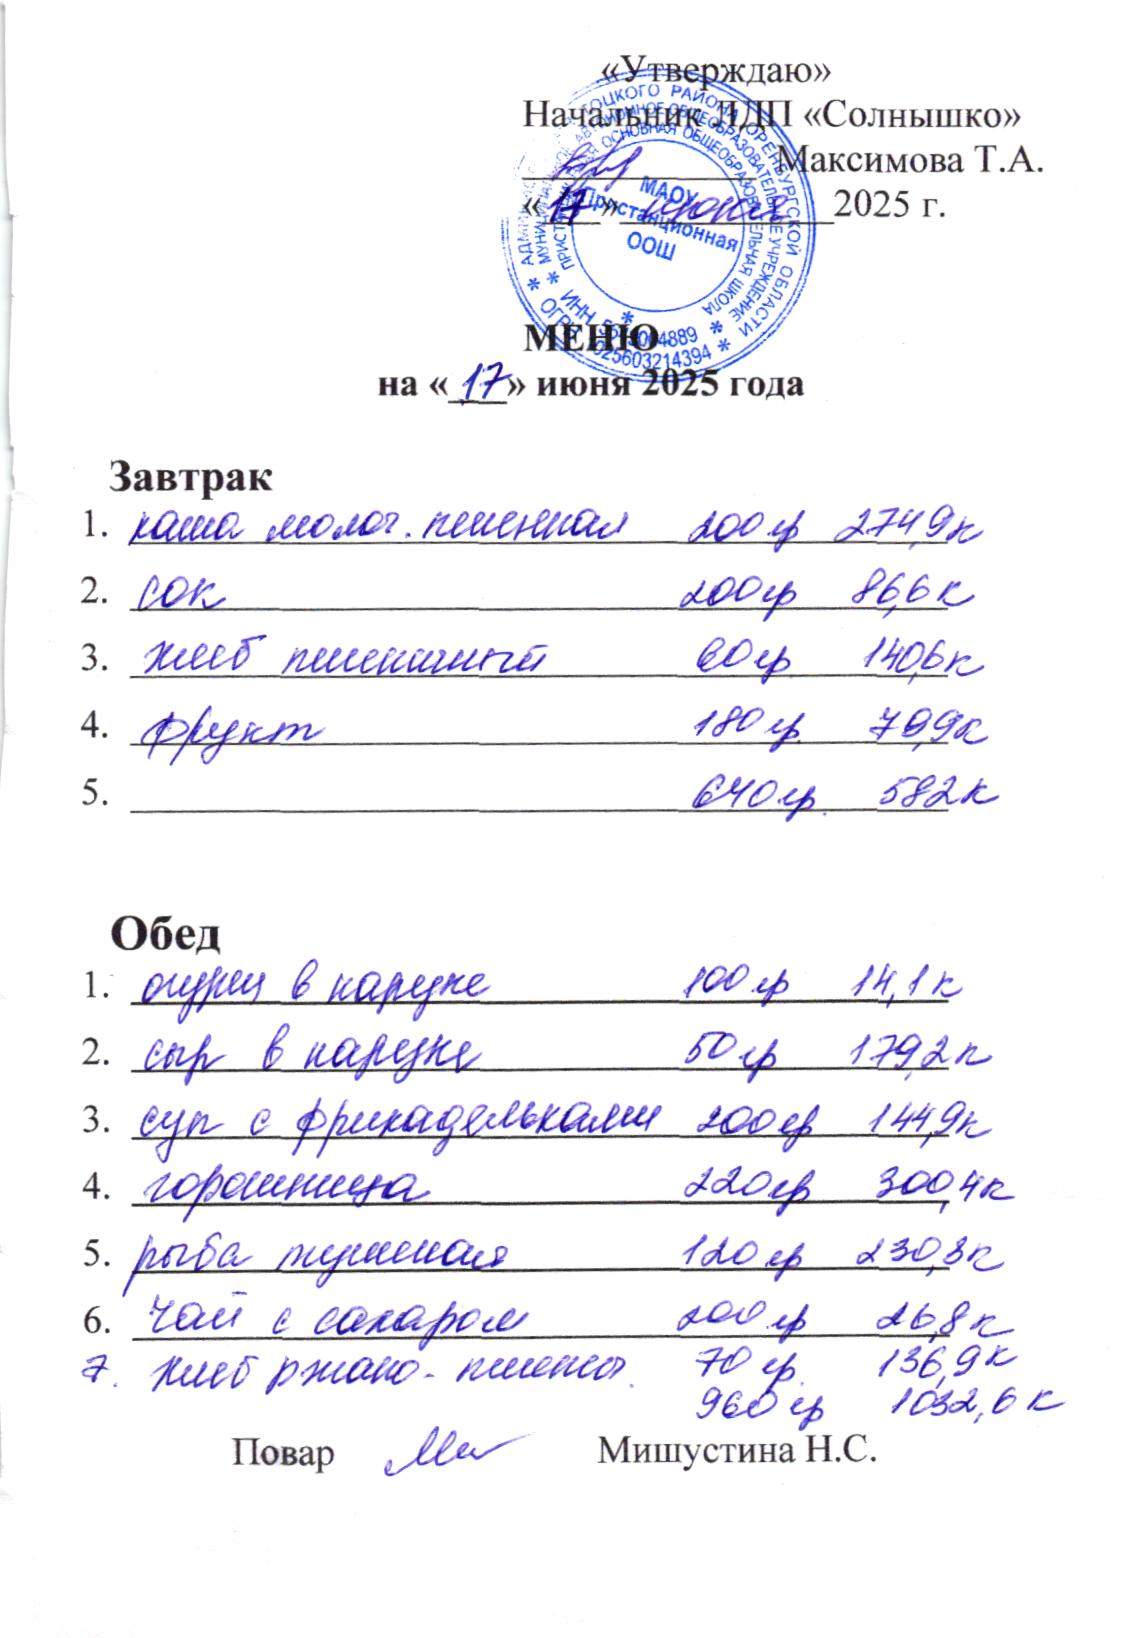 «Утверждаю»
Начальник ЛДП «Солнышко»
Максимова Т.А.
«17» июня 2025 г.
МАОУ
Пристанционная
ООШ
МЕНЮ
на «17» июня 2025 года
Завтрак
1. каша молоч. пшенная 200 гр 274,9 к
2. сок 200 гр 86,6 к
3. хлеб пшеничный 60 гр 140,6 к
4. фрукт 180 гр 79,9 к
5. 640 гр. 582 к
Обед
1. огурец в нарезке 100 гр 14,1 к
2. сыр в нарезке 50 гр 179,2 к
3. суп с фрикадельками 200 гр 144,9 к
4. горошница 220 гр 300,4 к
5. рыба тушеная 120 гр 230,3 к
6. чай с сахаром 200 гр 26,8 к
7. хлеб ржано-пшенич. 70 гр. 136,9 к
960 гр 1032,6 к
Повар Мишустина Н.С.